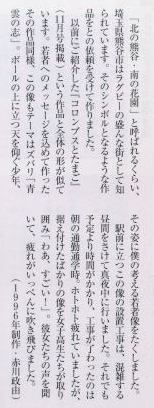 「北の熊谷・南の花園」と呼ばれるくらい、
埼玉県熊谷市はラグビーの盛んな街として知
られています。そのシンボルとなるような作
品をとの依頼を受けて作りました。
以前にご紹介した「コロンブスとたまご」
（11月号掲載）という作品と全体の形が似て
います。若者へのメッセージを込めて作った
その作品同様、この像もテーマはズバリ「青
雲の志」。ボールの上に立つ天を仰ぐ少年、
その姿に僕の考える若者像をたくしました。
駅前に立つこの像の設置工事は、混雑する
昼間をさけて真夜中に行いました。それでも
予定より時間がかかり、工事が終わったのは
朝の通勤通学時。ホトホト疲れていましたが、
据え付けたばかりの像を女子高生たちが取り
囲み「わあ、すごい！」。彼女たちの声を聞
いて、疲れがいっぺんに吹き飛びました。
（1996年制作・赤川政由）